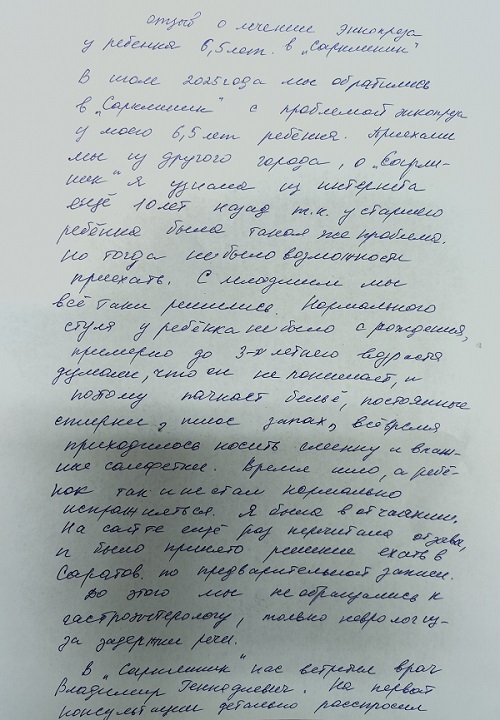 отзыв о лечении энкопреза
у ребенка 6,5 лет. в „Сарклиник"
В июле 2025 года мы обратились
в „Сарклиник" с проблемой энкопреза
у моего 6,5 лет ребёнка. Приехали
мы из другого города, о „Саркли-
ник" я узнала из интернета
ещё 10 лет назад т.к. у старшего
ребёнка была такая же проблема.
но тогда не было возможности
приехать. С младшим мы
всё таки решились. Нормального
стула у ребёнка не было с рождения,
примерно до 3-х летнего возраста
думали, что он не понимает, и
потому пачкает бельё, постоянные
стирки, плюс запах, всё время
приходилось носить сменку и влаж-
ные салфетки. Время шло, а ребё-
нок так и не стал нормально
испражняться. Я была в отчаянии.
На сайте ещё раз перечитала отзывы,
и было принято решение ехать в
Саратов. по предварительной записи.
До этого мы не обращались к
гастроэнтерологу, только неврологу из-
за задержки речи.
В „Сарклиник" нас встретил врач
Владимир Геннадиевич. На первой
консультации детально расспросил